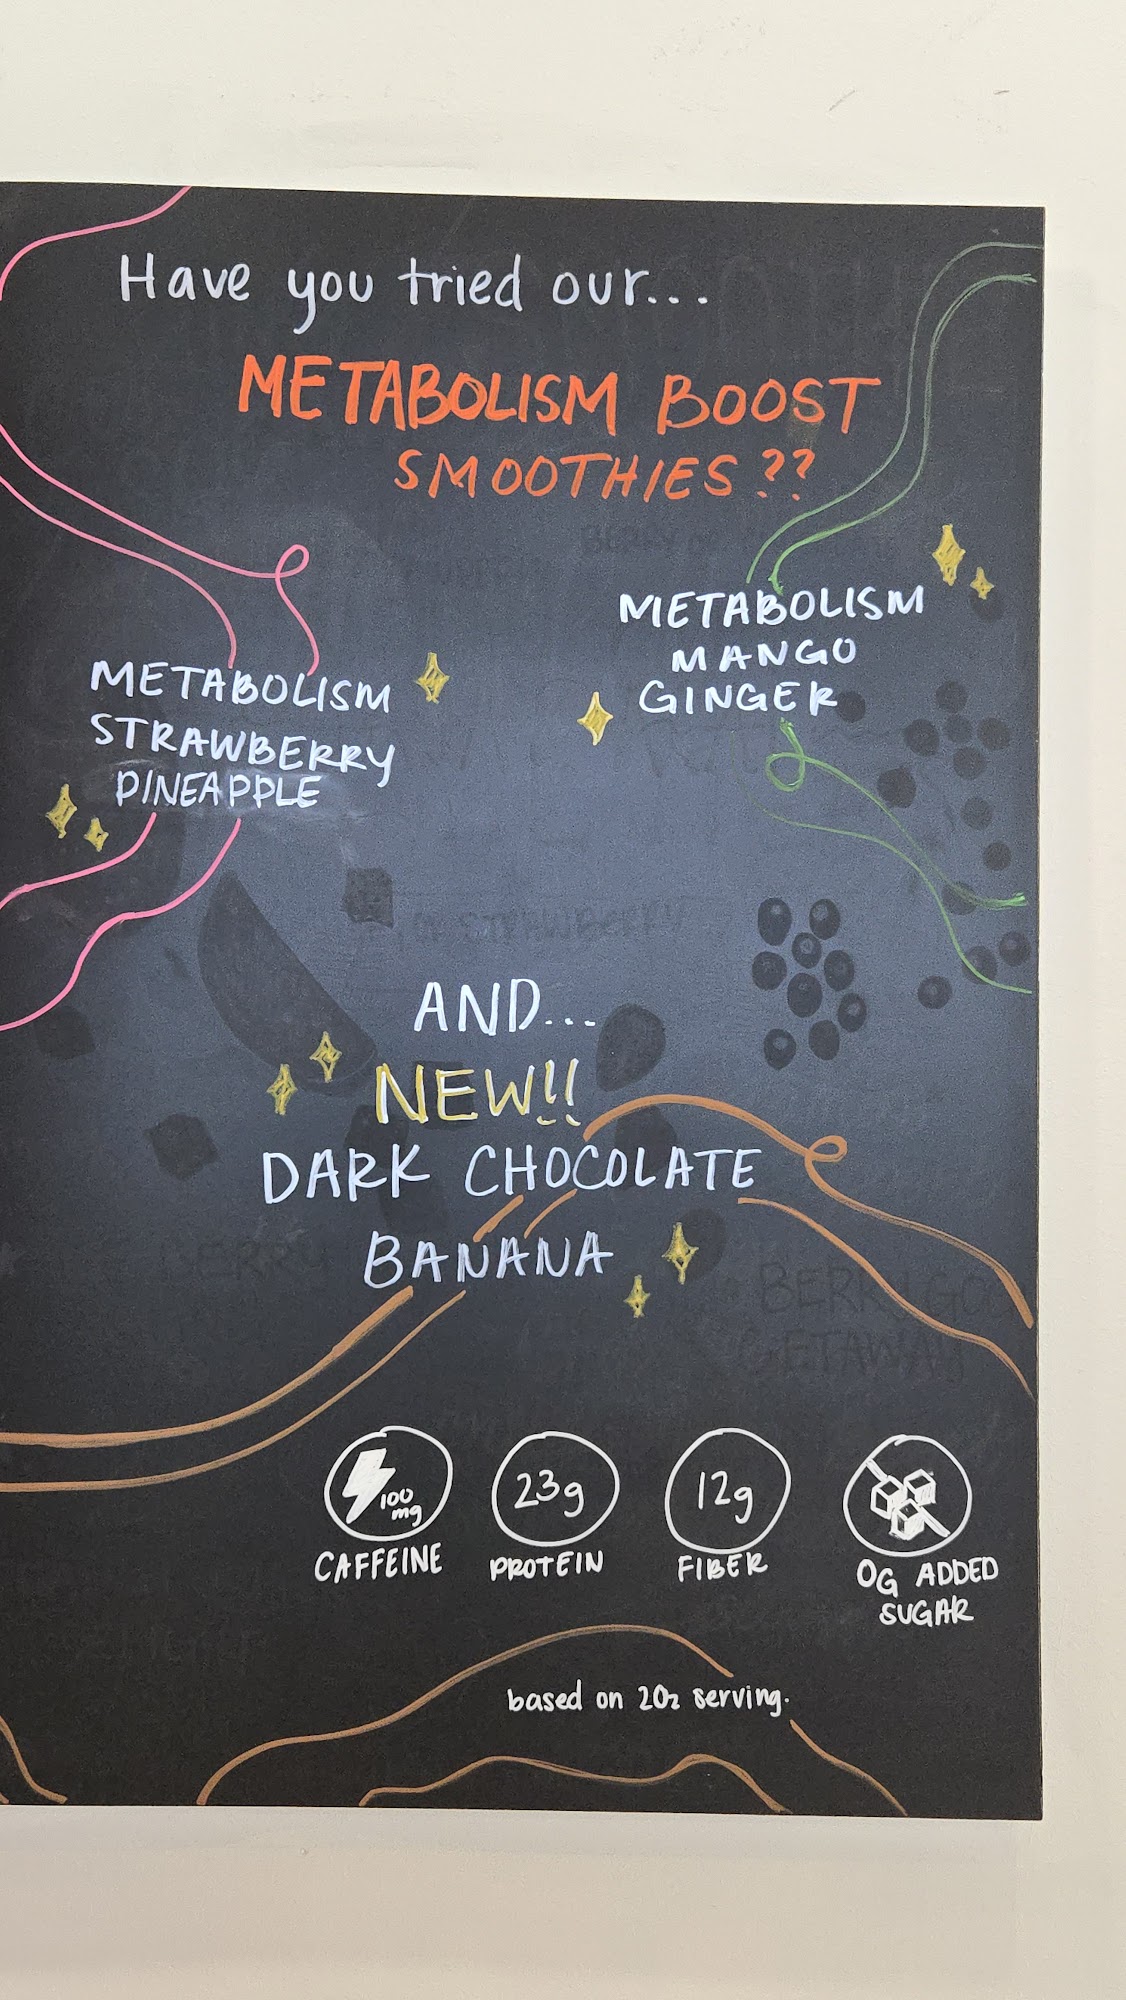 Have you tried our...
METABOLISM BOOST
SMOOTHIES??
METABOLISM
MANGO
GINGER
METABOLISM
STRAWBERRY
PINEAPPLE
AND...
NEW!!
DARK CHOCOLATE
BANANA
100
mg
CAFFEINE
23g
PROTEIN
12g
FIBER
0G ADDED
SUGAR
based on 20z serving.
STRAWBERRY
GETAWAY